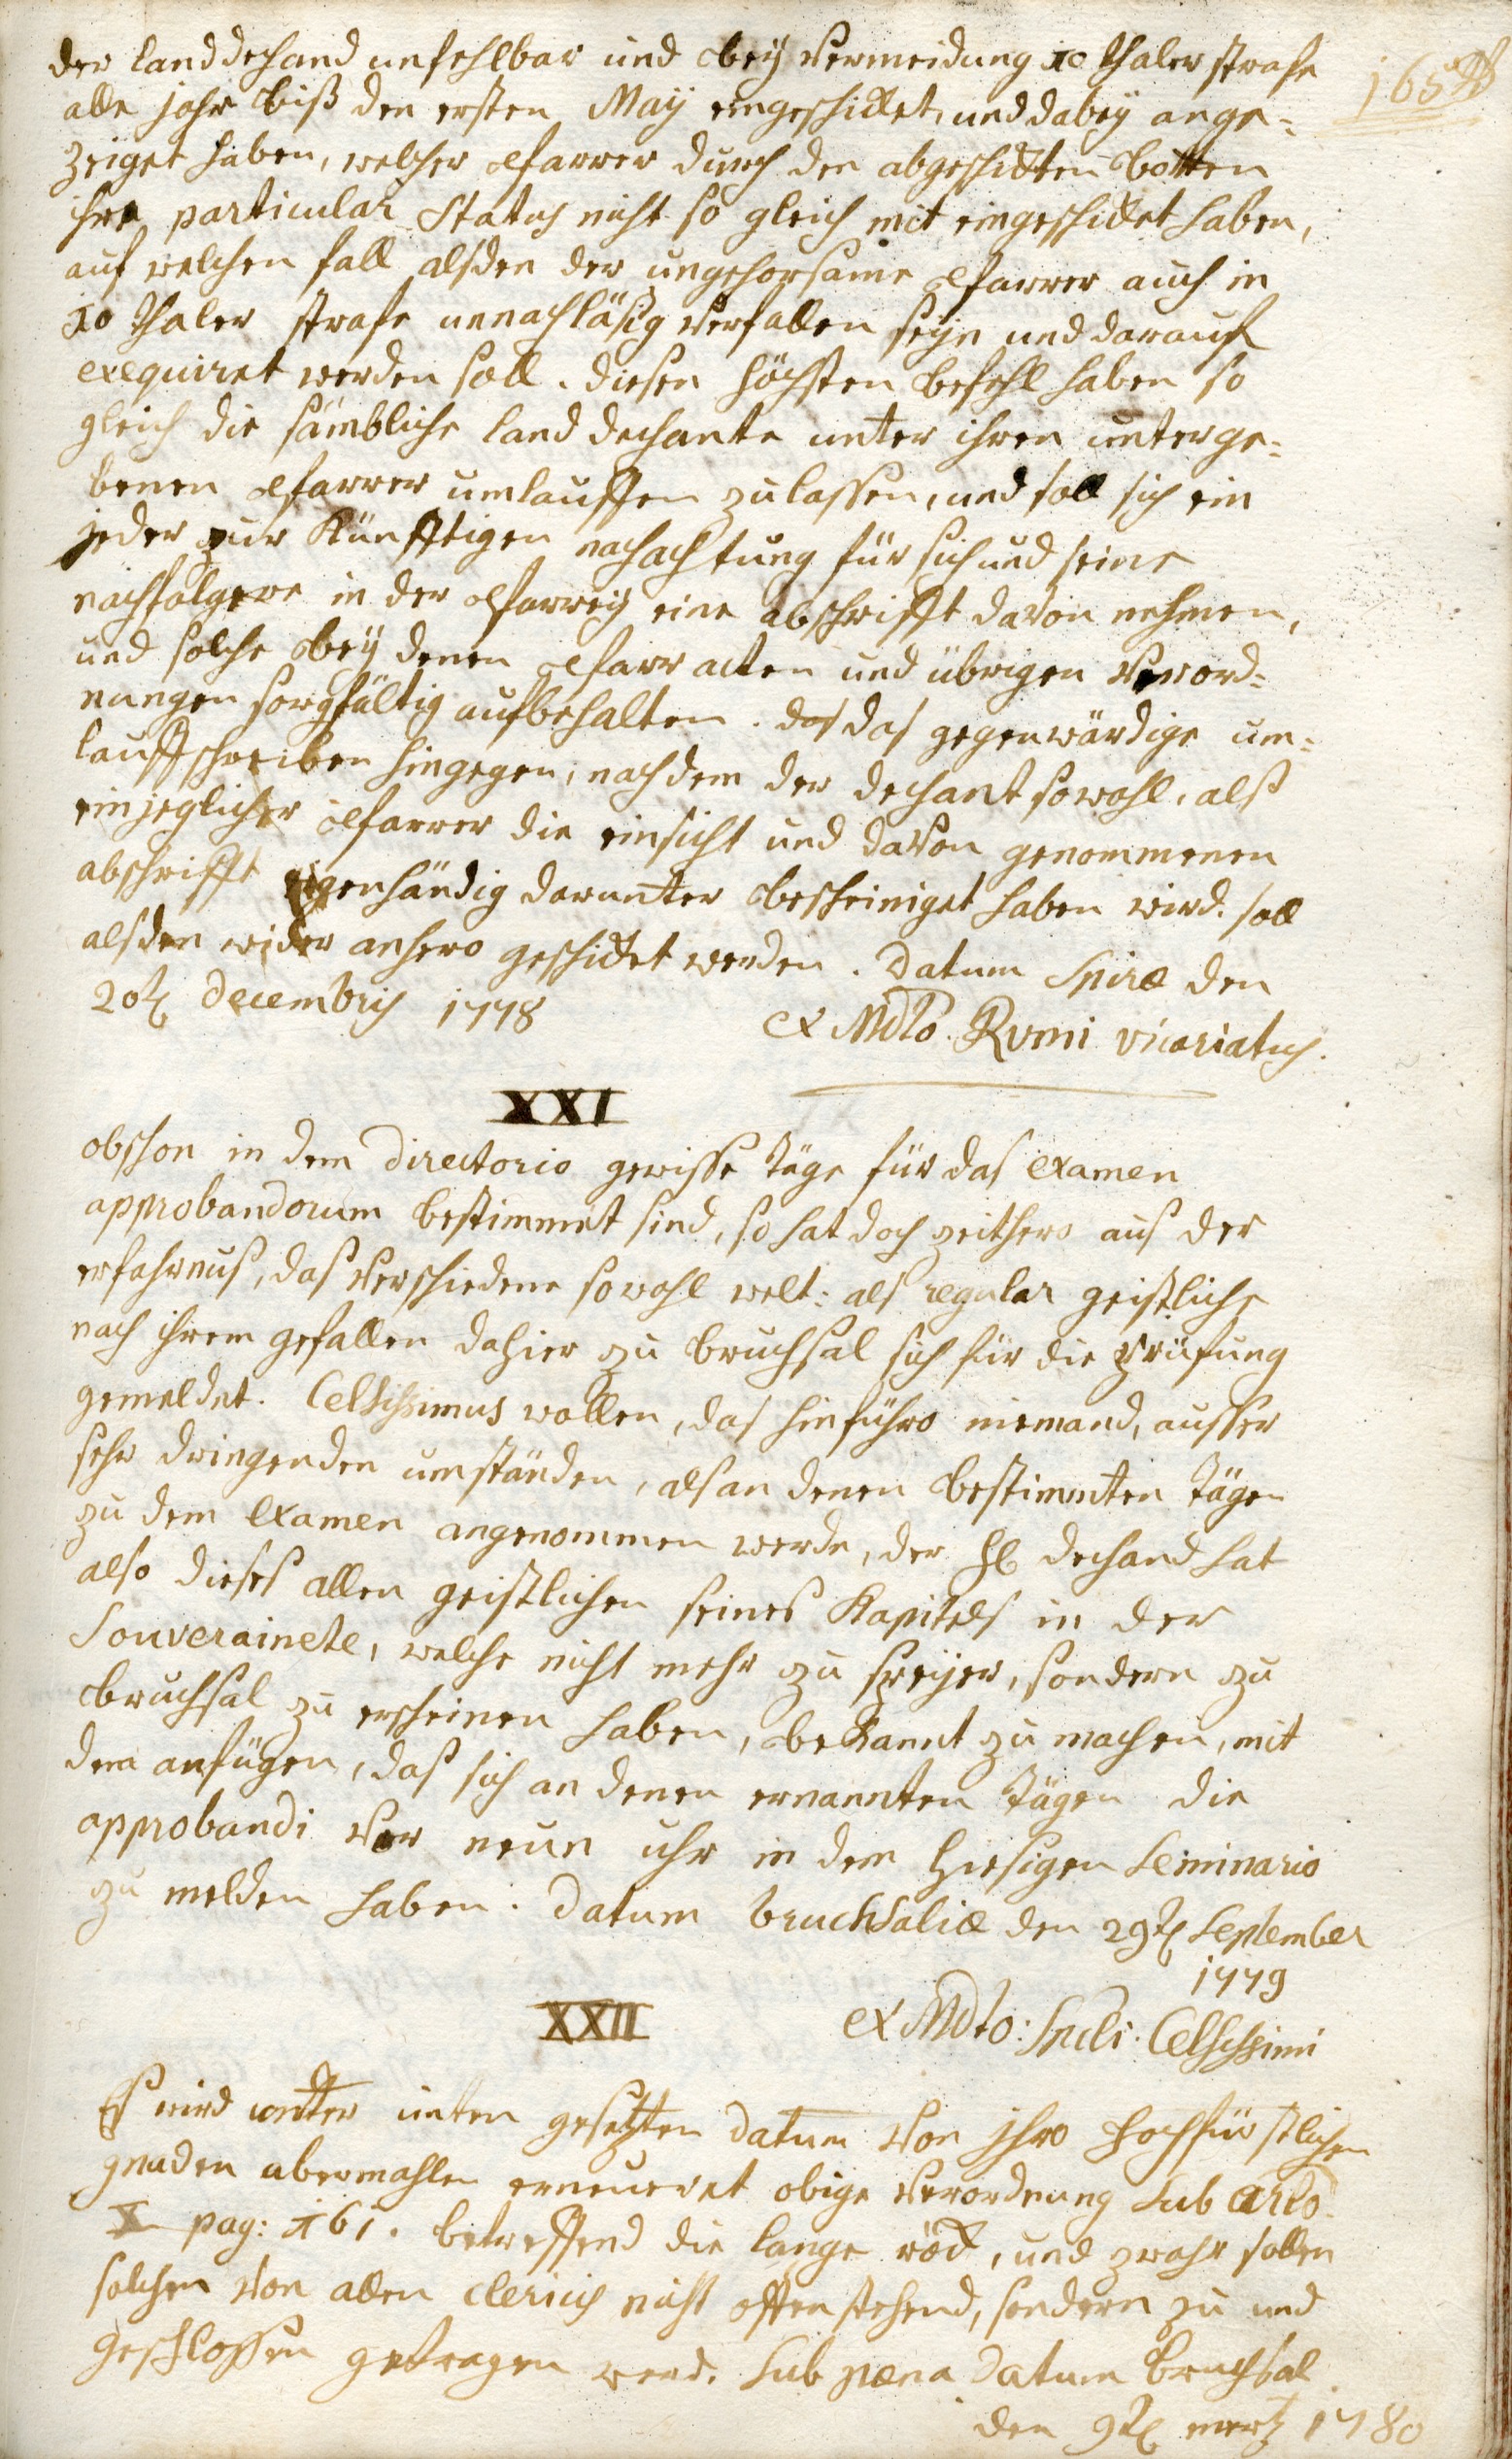 165
der landdechand unfehlbar und bey Vermeidung 10 thaler strafe
alle jahr biß den ersten May eingeschicket, und dabey ange-
zeiget haben, welcher Pfarrer durch den abgeschickten botten
ihre particular Status nicht so gleich mit eingeschicket haben,
auf welchen fall alsden der ungehorsame Pfarrer auch in
10 thaler strafe unnachläsig Verfallen seyn und darauf
exequiret werden soll. diesen höchsten befehl haben so
gleich die sämbliche land dechante unter ihren unterge-
benen Pfarrer umlauffen zulassen, und soll sich ein
jeder zur Künfftigen nachachtung für sich und seine
nachfolgere in der Pfarrey eine abschrifft davon nehmen,
und solche bey denen Pfarr acten und übrigen Verord-
nungen sorgfältig aufbehalten. das das gegenwärdige um-
lauffschreiben hingegen, nachdem der dechant sowohl, alß
ein jeglicher Pfarrer die einsicht und davon genommenen
abschrifft eigenhändig darunter bescheiniget haben wird. soll
alsden wider anhero geschicket werden. Datum Spiræ den
20t decembris 1778
ex Mdto. Rvmi vicariatus.
XXI
obschon in dem Directorio gewisse täge für das examen
approbandorum bestimmet sind, so hat doch zeithero aus der
erfahrnus, das Verschiedene sowohl welt: als regular geistliche
nach ihrem gefallen dahier zu bruchsal sich für die Prüfung
gemeldet. Celsissimus wollen, das hinführo niemand, ausser
sehr dringenden umständen, als an denen bestimmten tägen
zu dem examen angenommen werde, der H dechand hat
also dieses allen geistlichen seines Kapitels in der
Souverainete, welche nicht mehr zu speyer, sondern zu
bruchsal zu erscheinen haben, bekannt zu machen, mit
dem anfügen, daß sich an denen ernannten tägen die
approbandi vor neun uhr in dem hiesigen Seminario
zu melden haben. Datum bruchsaliæ den 29t September
1779
XXII
ex Mdto: Spcli. Celsissimi
Es wird unter unten gesetzten datum Von ihro hochfürstlichen
gnaden abermahlen erneueret obige Verordnung sub arto.
X pag: 161. betreffend die lange röck, und zwahr sollen
solchen Von allen clericis nicht offenstehend, sondern zu und
geschlossen getragen werd. sub pœna datum bruchsal
den 9t mertz 1780